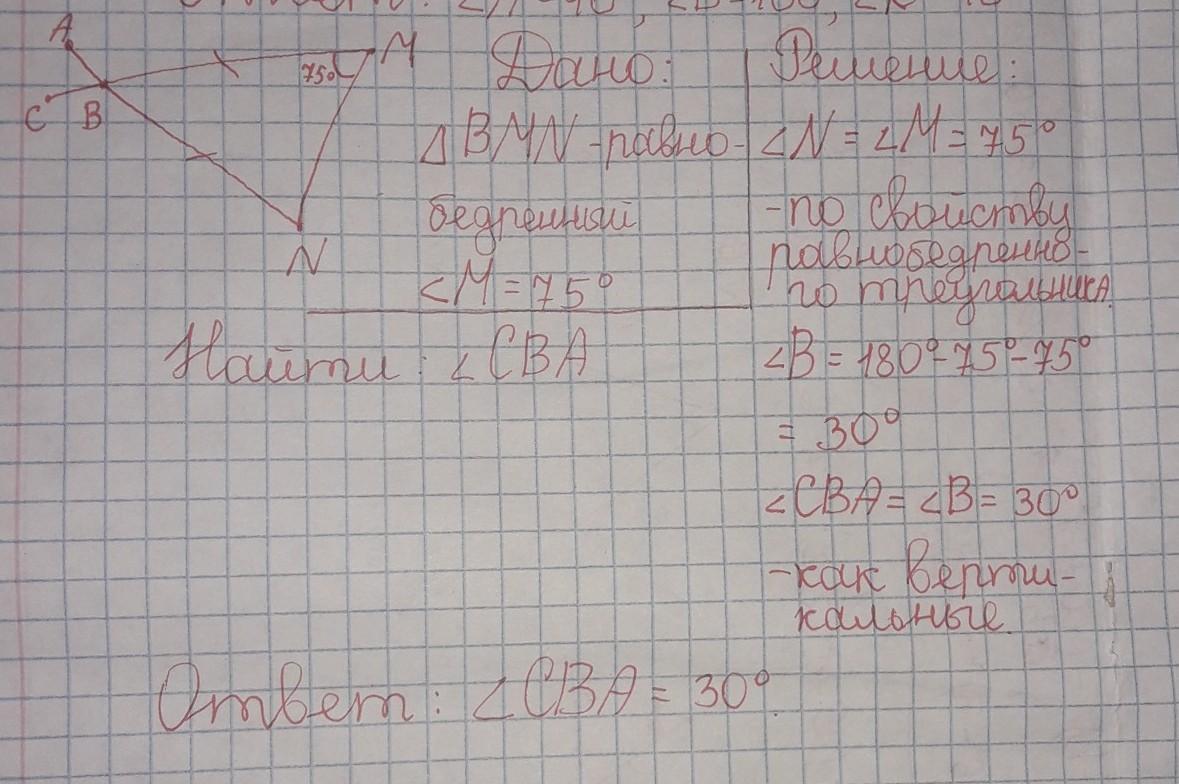 A
M
75°
C
B
N
Дано:
△BMN - равно-
бедренный
∠M = 75°
Найти: ∠CBA
Решение:
∠N = ∠M = 75°
- по свойству
равнобедренно-
го треугольника.
∠B = 180° - 75° - 75°
= 30°
∠CBA = ∠B = 30°
- как верти-
кальные.
Ответ: ∠CBA = 30°.